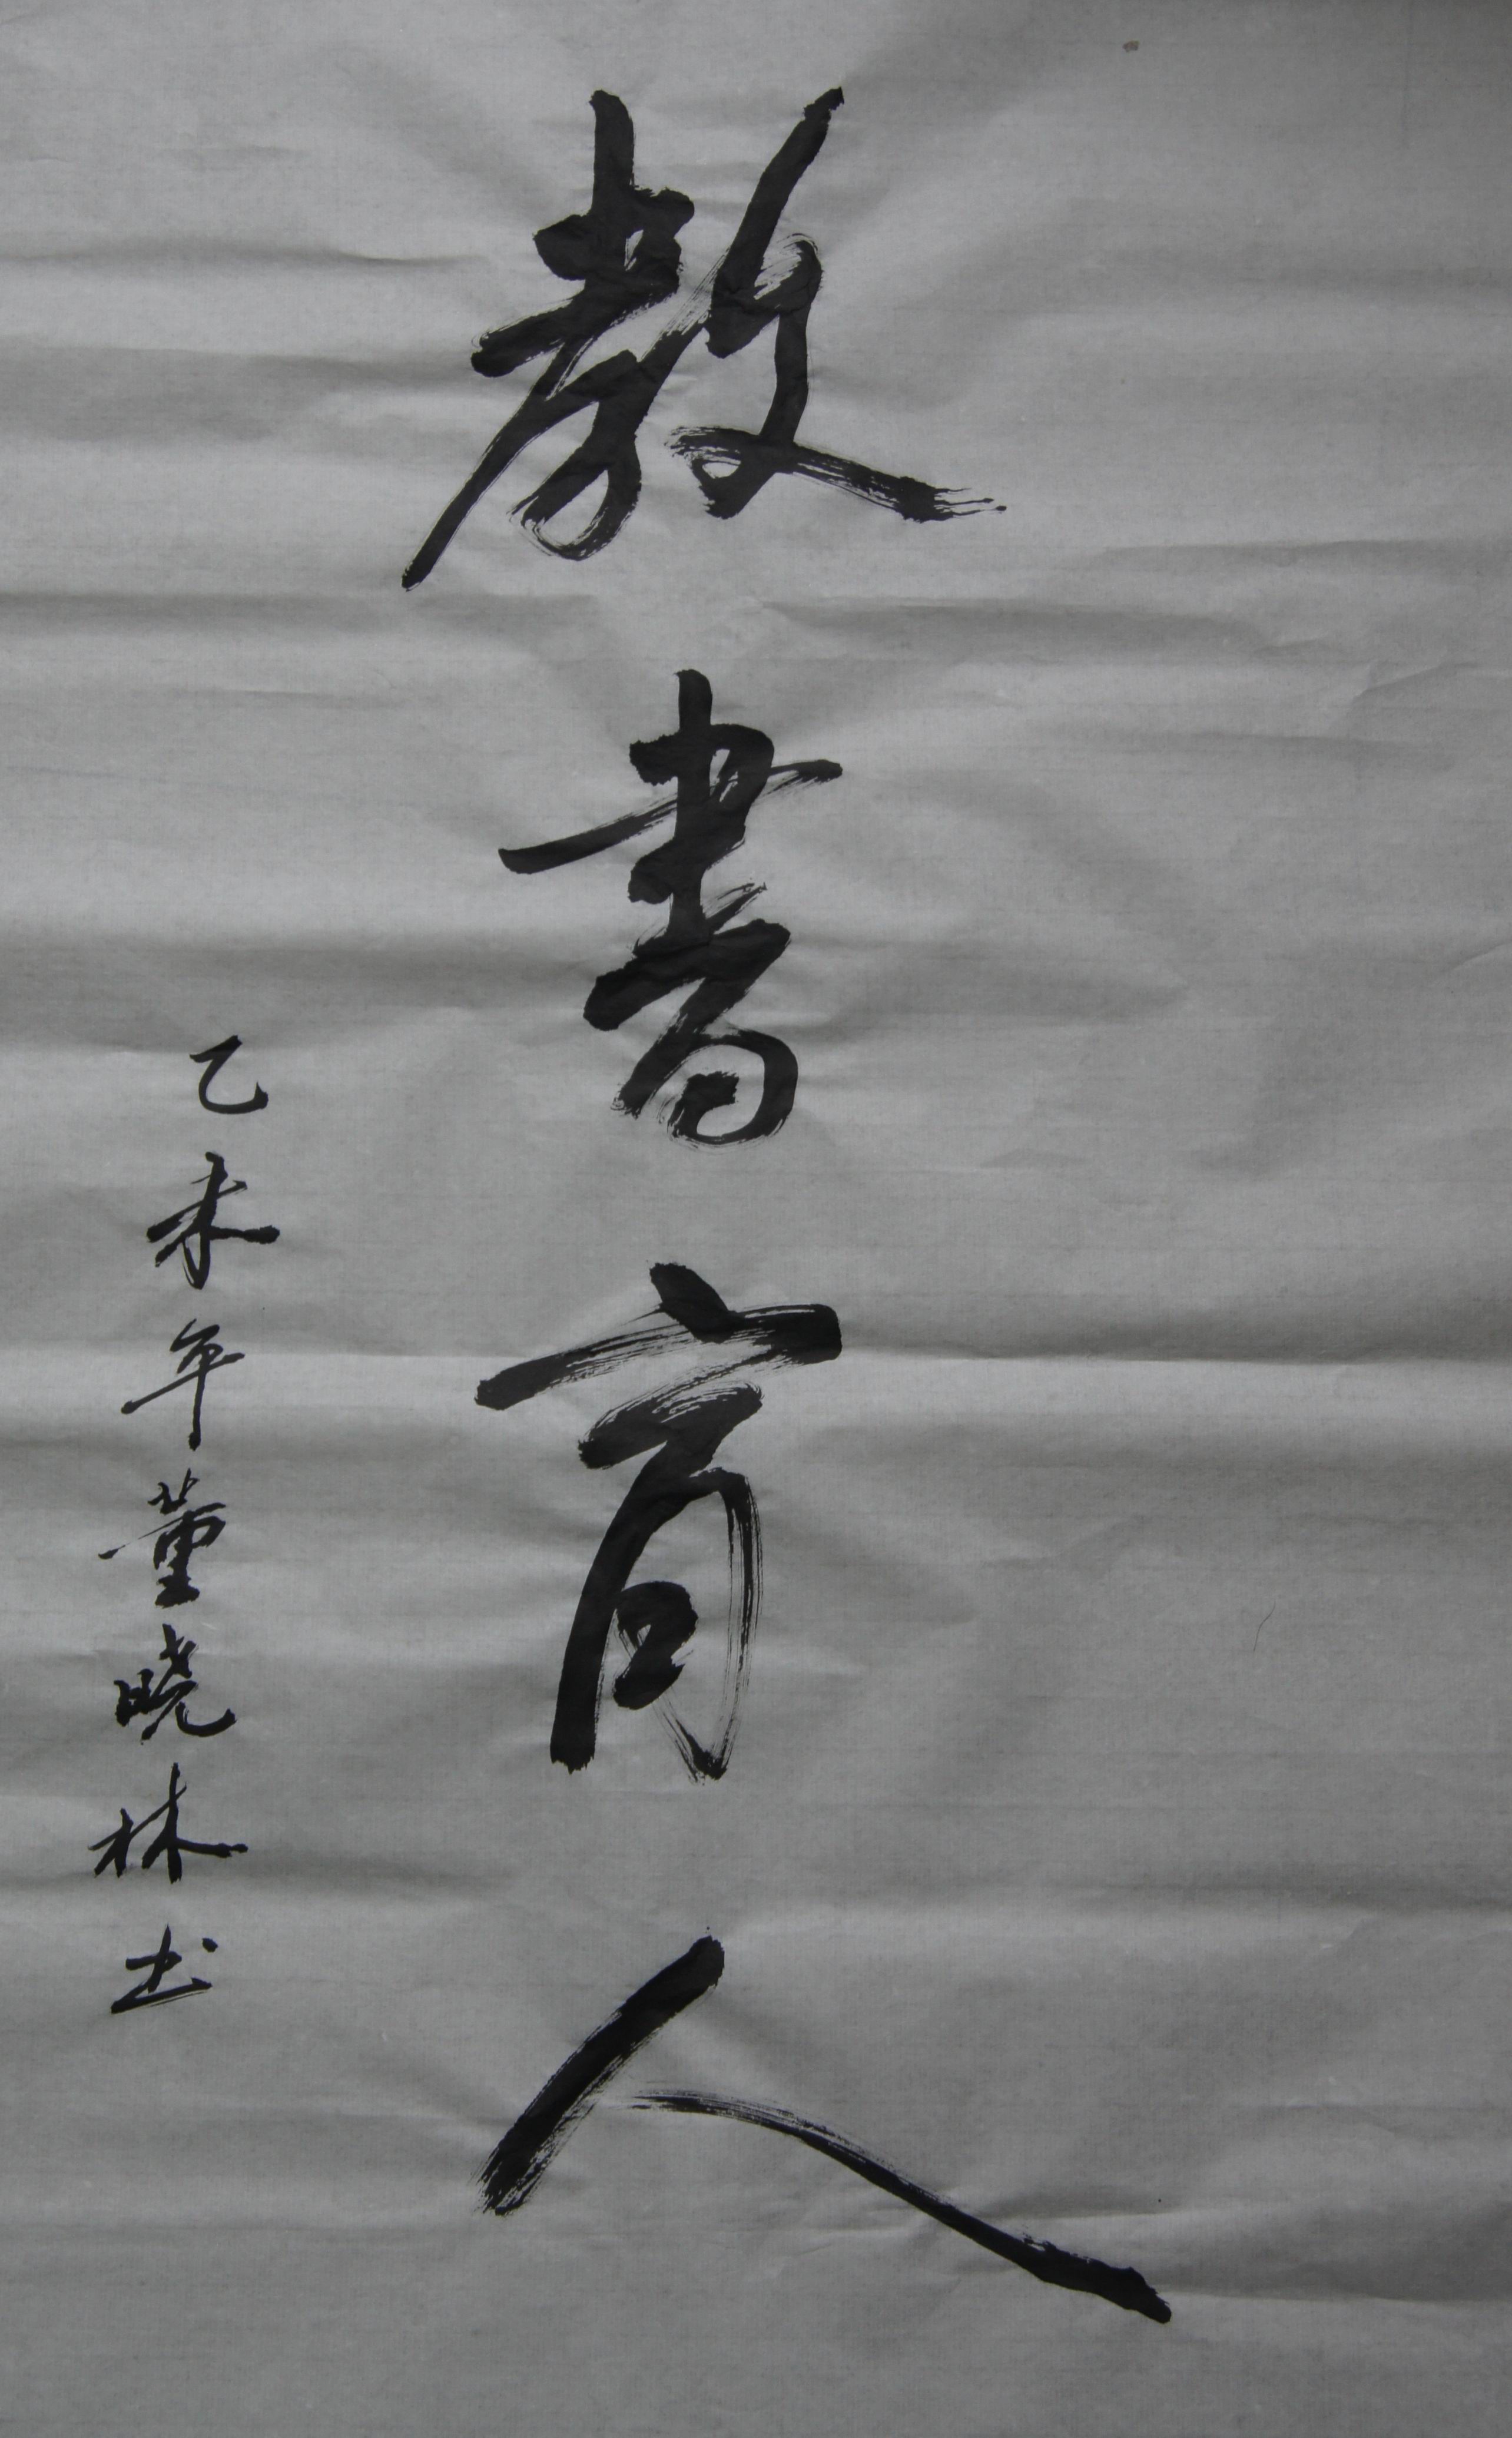 教書育人
乙未年董晓林书